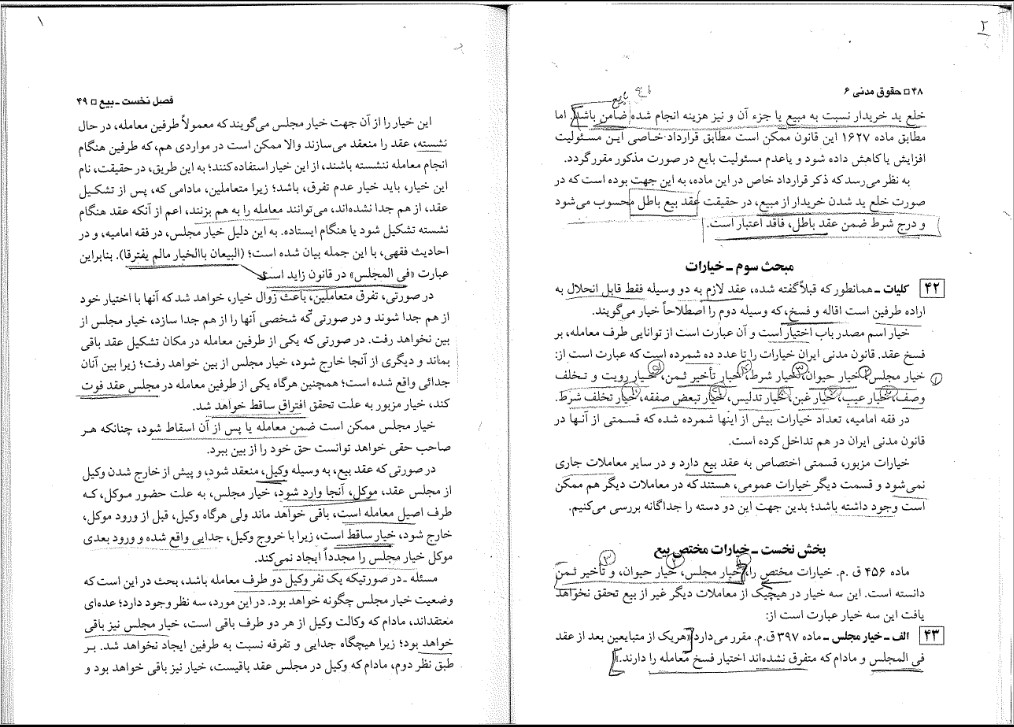 ۲
۴۸ □ حقوق مدنی ۶
بایع
خلع ید خریدار نسبت به مبیع یا جزء آن و نیز هزینه انجام شده ضامن باشد. اما
مطابق ماده ۱۶۲۷ این قانون ممکن است مطابق قرارداد خاصی این مسئولیت
افزایش یا کاهش داده شود و یا عدم مسئولیت بایع در صورت مذکور مقرر گردد.
به نظر می‌رسد که ذکر قرارداد خاص در این ماده، به این جهت بوده است که در
صورت خلع ید شدن خریدار از مبیع، در حقیقت عقد بیع باطل محسوب می‌شود
و درج شرط ضمن عقد باطل، فاقد اعتبار است.
مبحث سوم ـ خیارات
۴۲ کلیات ـ همانطور که قبلاً گفته شده، عقد لازم به دو وسیله فقط قابل انحلال به
اراده طرفین است اقاله و فسخ، که وسیله دوم را اصطلاحاً خیار می‌گویند.
خیار اسم مصدر باب اختیار است و آن عبارت است از توانایی طرف معامله، بر
فسخ عقد. قانون مدنی ایران خیارات را تا عدد ده شمرده است که عبارت است از:
خیار مجلس، خیار حیوان، خیار شرط، خیار تأخیر ثمن، خیار رویت و تخلف
وصف، خیار عیب، خیار غبن، خیار تدلیس، خیار تبعض صفقه، خیار تخلف شرط.
در فقه امامیه، تعداد خیارات بیش از اینها شمرده شده که قسمتی از آنها در
قانون مدنی ایران در هم تداخل کرده است.
خیارات مزبور، قسمتی اختصاص به عقد بیع دارد و در سایر معاملات جاری
نمی‌شود و قسمت دیگر خیارات عمومی، هستند که در معاملات دیگر هم ممکن
است وجود داشته باشد؛ بدین جهت این دو دسته را جداگانه بررسی می‌کنیم.
بخش نخست ـ خیارات مختص بیع
ماده ۴۵۶ ق.م. خیارات مختص را، خیار مجلس، خیار حیوان، و تأخیر ثمن
دانسته است. این سه خیار در هیچیک از معاملات دیگر غیر از بیع تحقق نخواهد
یافت این سه خیار عبارت است از:
۴۳ الف ـ خیار مجلس ـ ماده ۳۹۷ ق.م. مقرر می‌دارد «هریک از متبایعین بعد از عقد
فی المجلس و مادام که متفرق نشده‌اند اختیار فسخ معامله را دارند.»
۱
فصل نخست ـ بیع □ ۴۹
این خیار را از آن جهت خیار مجلس می‌گویند که معمولاً طرفین معامله، در حال
نشسته، عقد را منعقد می‌سازند والا ممکن است در مواردی هم، که طرفین هنگام
انجام معامله ننشسته باشند، از این خیار استفاده کنند؛ به این طریق، در حقیقت، نام
این خیار، باید خیار عدم تفرق، باشد؛ زیرا متعاملین، مادامی که، پس از تشکیل
عقد، از هم جدا نشده‌اند، می‌توانند معامله را به هم بزنند، اعم از آنکه عقد هنگام
نشسته تشکیل شود یا هنگام ایستاده. به این دلیل خیار مجلس، در فقه امامیه، و در
احادیث فقهی، با این جمله بیان شده است؛ (البیعان باالخیار مالم یفترقا). بنابراین
عبارت «فی المجلس» در قانون زاید است.
در صورتی، تفرق متعاملین، باعث زوال خیار، خواهد شد که آنها با اختیار خود
از هم جدا شوند و در صورتی که شخصی آنها را از هم جدا سازد، خیار مجلس از
بین نخواهد رفت. در صورتی که یکی از طرفین معامله در مکان تشکیل عقد باقی
بماند و دیگری از آنجا خارج شود، خیار مجلس از بین خواهد رفت؛ زیرا بین آنان
جدائی واقع شده است؛ همچنین هرگاه یکی از طرفین معامله در مجلس عقد فوت
کند، خیار مزبور به علت تحقق افتراق ساقط خواهد شد.
خیار مجلس ممکن است ضمن معامله یا پس از آن اسقاط شود، چنانکه هر
صاحب حقی خواهد توانست حق خود را از بین ببرد.
در صورتی که عقد بیع، به وسیله وکیل، منعقد شود، و پیش از خارج شدن وکیل
از مجلس عقد، موکل، آنجا وارد شود، خیار مجلس، به علت حضور موکل، که
طرف اصیل معامله است، باقی خواهد ماند ولی هرگاه وکیل، قبل از ورود موکل،
خارج شود، خیار ساقط است، زیرا با خروج وکیل، جدایی واقع شده و ورود بعدی
موکل خیار مجلس را مجدداً ایجاد نمی‌کند.
مسئله ـ در صورتیکه یک نفر وکیل دو طرف معامله باشد، بحث در این است که
وضعیت خیار مجلس چگونه خواهد بود. در این مورد، سه نظر وجود دارد؛ عده‌ای
معتقداند، مادام که وکالت وکیل از هر دو طرف باقی است، خیار مجلس نیز باقی
خواهد بود؛ زیرا هیچگاه جدایی و تفرقه نسبت به طرفین ایجاد نخواهد شد. بر
طبق نظر دوم، مادام که وکیل در مجلس عقد باقیست، خیار نیز باقی خواهد بود و